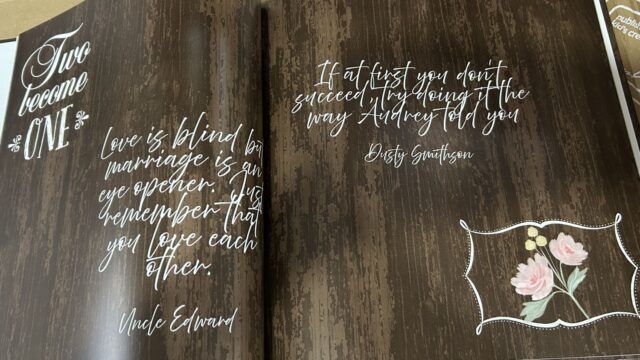 Two
become
ONE
Love is blind bu
marriage is an
eye opener. Just
remember that
you love each
other.
Uncle Edward
If at first you don't
succeed, try doing it the
way Audrey told you
Dusty Smithson